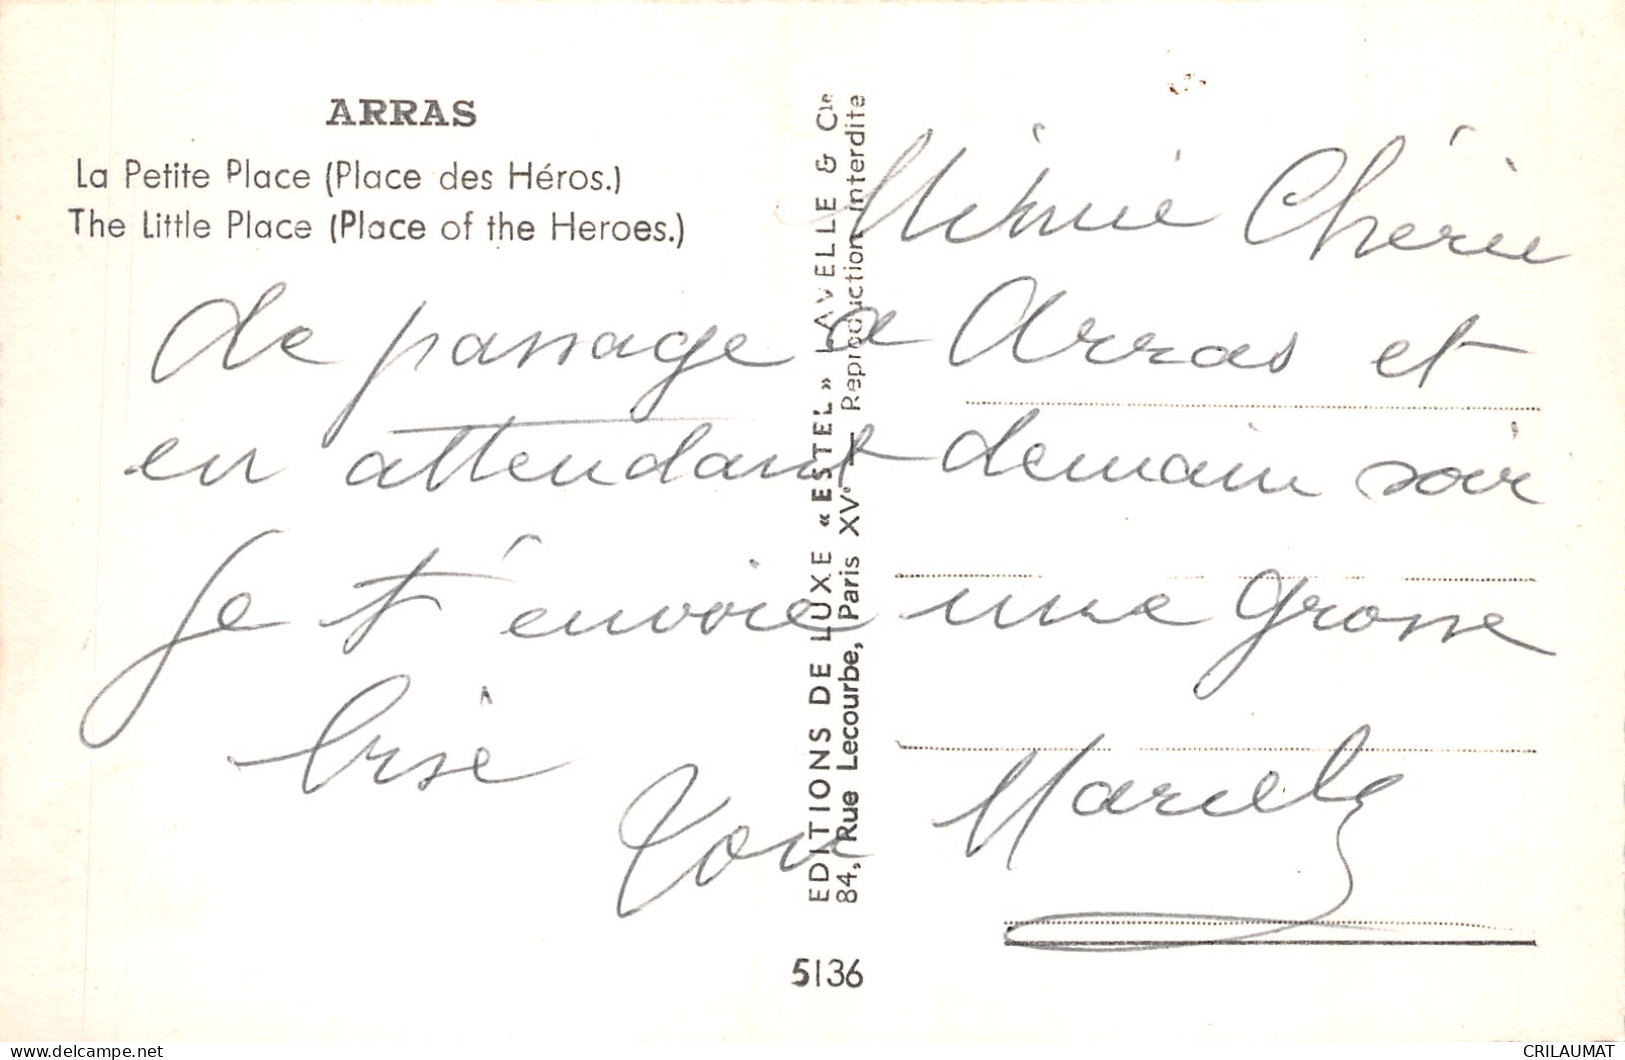 ARRAS
La Petite Place (Place des Héros.)
The Little Place (Place of the Heroes.)
Mimie Chérie
de passage a Arras et
en attendant demain soir
Je t'envoie une grosse
brise
Ton Marcel
EDITIONS DE LUXE « ESTEL » LAVELLE & Cie
84, Rue Lecourbe, Paris XVe — Reproduction Interdite
5136
delcampe.net
CRILAUMAT